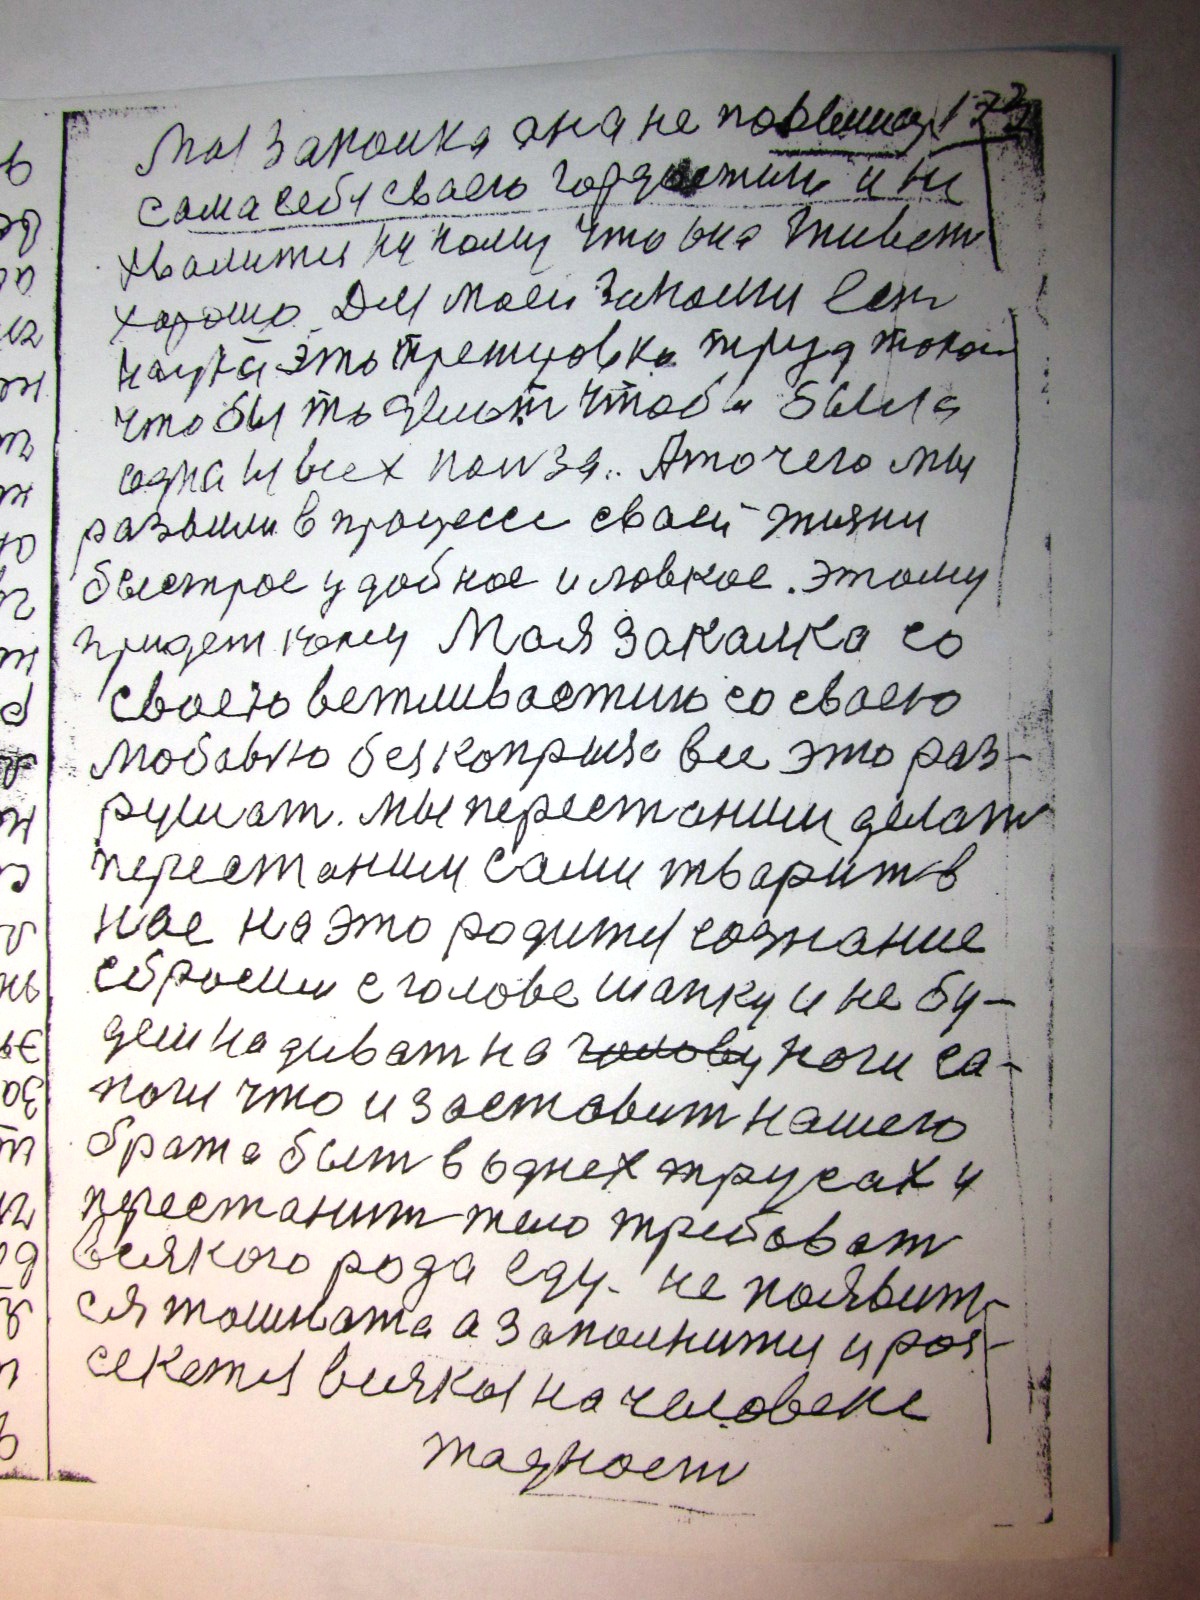 Моя закалка она не повышая 173
сама себя своею гордостию и ни
хвалится ни кому что она живет
хорошо. Для моей закалки ест
наука это тренировка труд такой
чтобы то делат чтобы была
одна и всех польза.. А то чего мы
развили в процессе своей жизни
быстрое удобное и ловкое. этому
придет конец Моя закалка со
своею вежливастию со своею
любовью без каприза все это раз-
рушат. мы перестаним делат
перестаним сами тварит в
нас на это родится сознание
сбросим с голове шапку и не бу-
дем надиват на голову ноги са-
поги что и заставит нашего
брата быт в однех трусах и
перестанит тело требоват
всякого рода еду. не появит-
ся тошната а заполнится и роз-
секется всякая на человеке
жадност